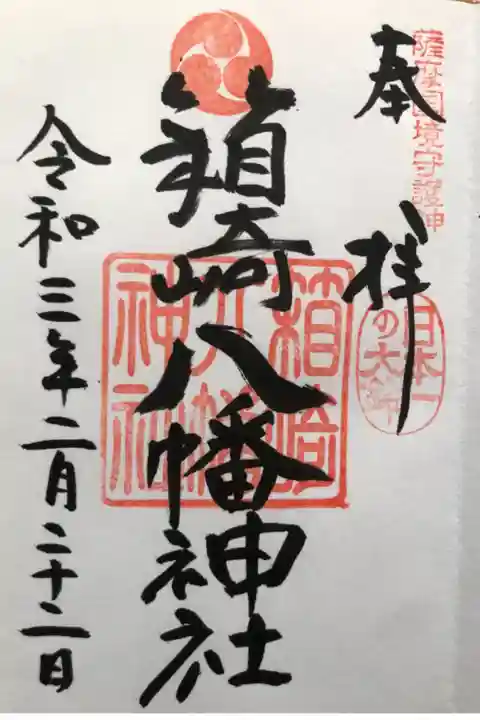 薩摩國境守護神
奉拝
日本一の大鈴
箱崎八幡神社
箱崎八幡神社
令和三年二月二十二日